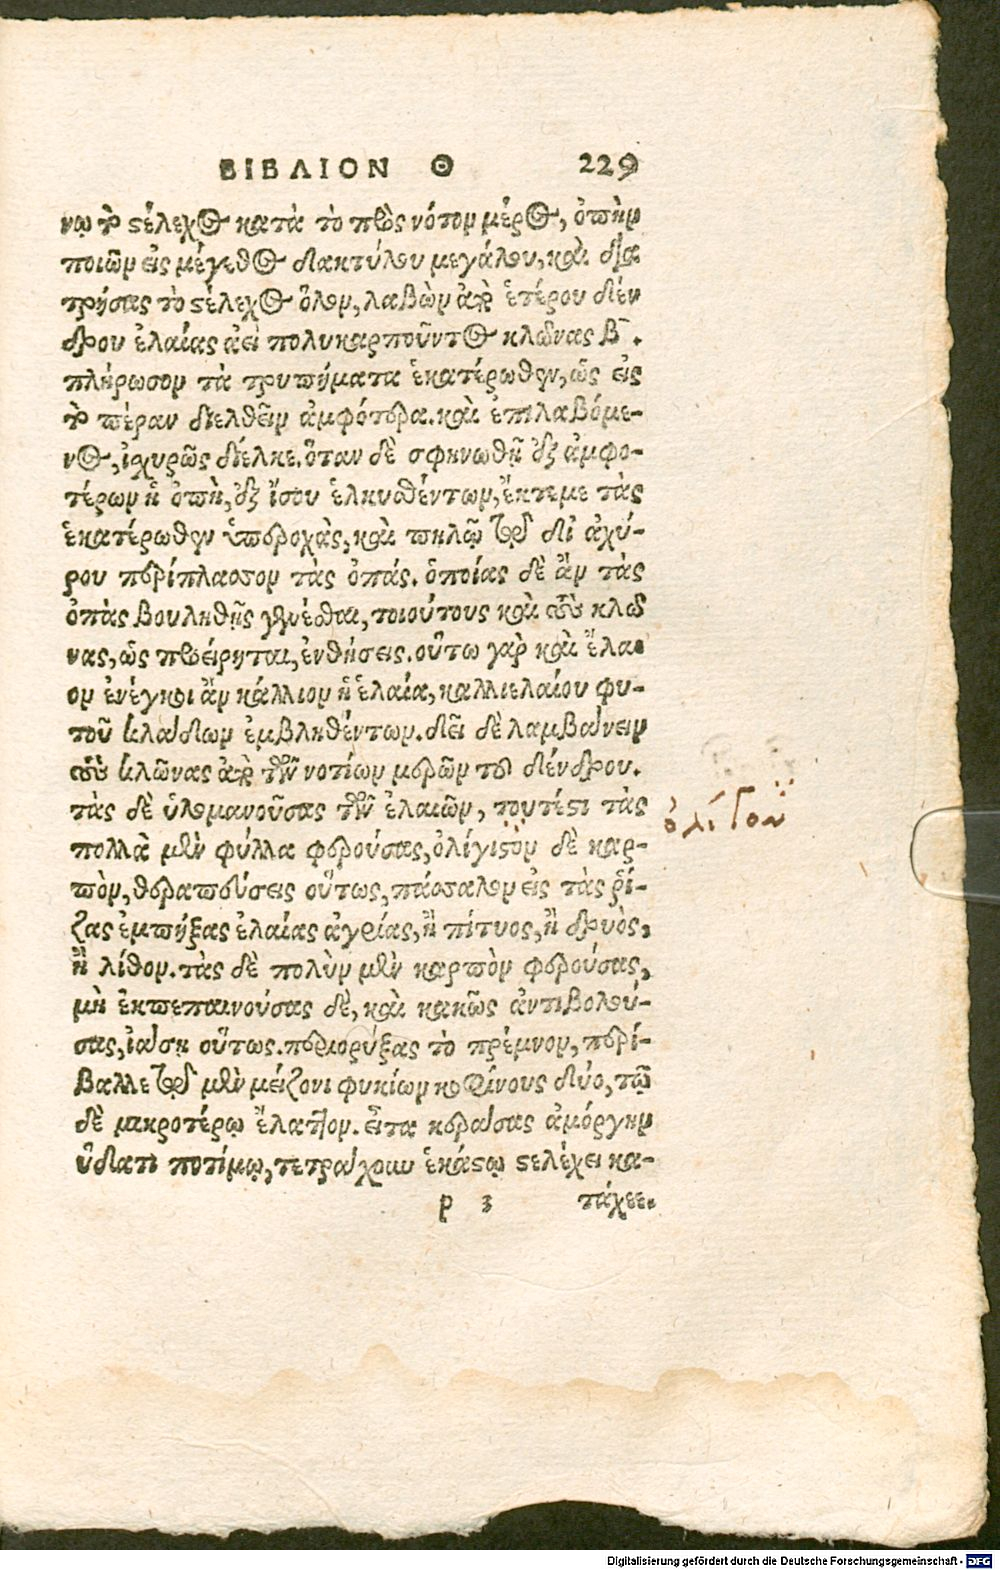 ΒΙΒΛΙΟΝ Θ 229
νῳ τὸ στέλεχος κατὰ τὸ πρὸς νότον μέρος, ὀπὴν
ποιῶν εἰς μέγεθος δακτύλου μεγάλου, καὶ δια
τρήσας τὸ στέλεχος ὅλον, λαβὼν ἀπὸ ἑτέρου δέν
δρου ἐλαίας ἀεὶ πολυκαρποῦντος κλῶνας β̄.
πλήρωσον τὰ τρυπήματα ἑκατέρωθεν, ὡς εἰς
τὸ πέραν διελθεῖν ἀμφότερα. καὶ ἐπιλαβόμε-
νος, ἰσχυρῶς δίελκε. ὅταν δὲ σφηνωθῇ ἐξ ἀμφο-
τέρων ἡ ὀπὴ, ἐξ ἴσου ἑλκυσθέντων, ἔκτεμε τὰς
ἑκατέρωθεν ὑπεροχὰς, καὶ πηλῷ μετὰ δι ἀχύ-
ρου περίπλασσον τὰς ὀπάς. ὁποίας δὲ ἂν τὰς
ὀπὰς βουληθῇς γενέσθαι, τοιούτους καὶ τοὺς κλῶ
νας, ὡς προείρηται, ἐνθήσεις. οὕτω γὰρ καὶ ἔλαι
ον ἐνέγκοι ἂν κάλλιον ἡ ἐλαία, καλλιελαίου φυ-
τοῦ κλάδων ἐμβληθέντων. δεῖ δὲ λαμβάνειν
τοὺς κλῶνας ἀπὸ τῶν νοτίων μερῶν τοῦ δένδρου.
τὰς δὲ ὑλομανοῦσας τῶν ἐλαιῶν, τουτέστι τὰς
πολλὰ μὲν φύλλα φερούσας, ὀλίγιστον δὲ καρ-
πὸν, θεραπεύσεις οὕτως, πάσσαλον εἰς τὰς ῥί-
ζας ἐμπήξας ἐλαίας ἀγρίας, ἢ πίτυος, ἢ δρυὸς,
ἢ λίθον. τὰς δὲ πολὺν μὲν καρπὸν φερούσας,
μὴ ἐκπεπαινούσας δὲ, καὶ κακῶς ἀντιβολού-
σας, ἰάσῃ οὕτως. περιορύξας τὸ πρέμνον, περί-
βαλλε τῷ μὲν μείζονι φυκίων κοφίνους δύο, τῷ
δὲ μικροτέρῳ ἔλαττον. εἶτα κεράσας ἀμόργην
ὕδατι ποτίμῳ, τετράχουν ἑκάστῳ στελέχει κα-
ρ 3 τάχεε.
ὀλίγον
Digitalisierung gefördert durch die Deutsche Forschungsgemeinschaft - DFG